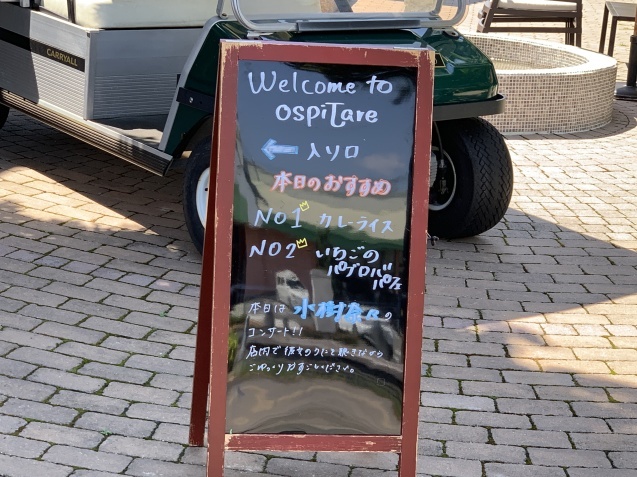 CARRYALL
Welcome to
ospitare
← 入り口
本日のおすすめ
NO1 カレーライス
NO2 いちごの
パブロバ
パフェ
本日は 水樹奈々の
コンサート!!
店内で
ごゆっくりおすごしください。